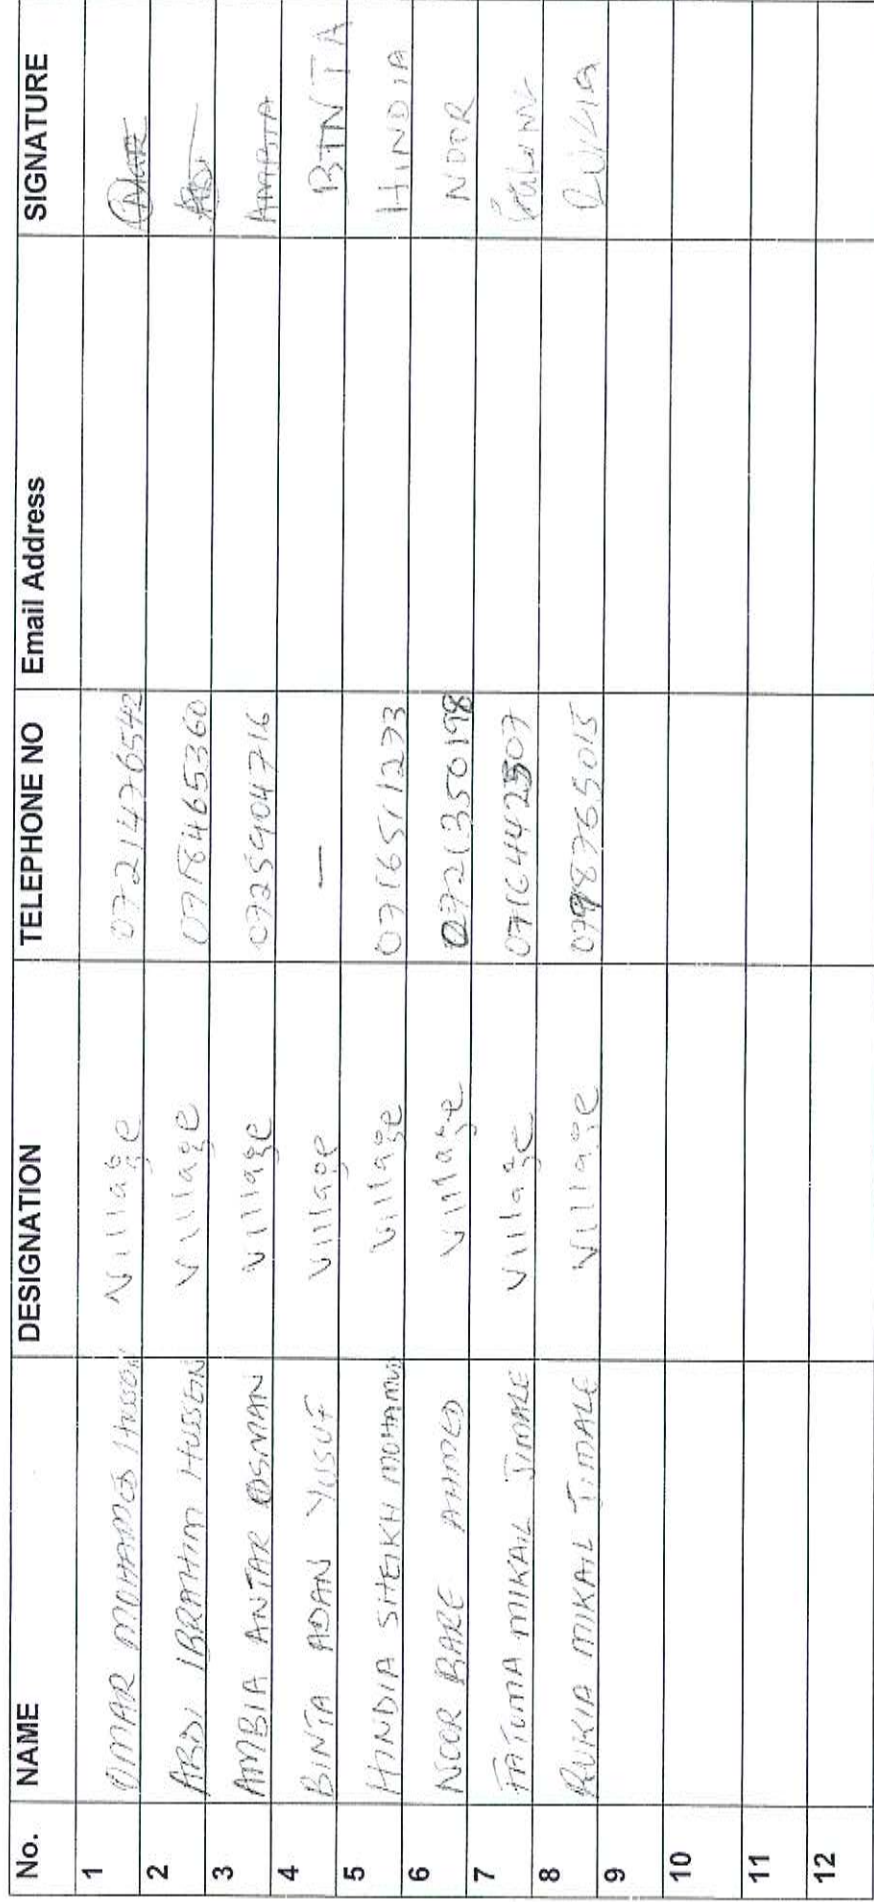 No. NAME DESIGNATION TELEPHONE NO Email Address SIGNATURE
1 OMAR MOHAMED Hussen Village 0721476542 OMAR
2 ABDI IBRAHIM HUSSEN Village 0718465360 ABDI
3 AMBIA ANTAR OSMAN Village 0725904716 AMBIA
4 BINTA ADAN YUSUF Village — BINTA
5 HINDIA SHEIKH MOHAMUD Village 0716511273 HINDIA
6 NOOR BARE AHMED Village 0721350198 NOOR
7 FATUMA MIKAIL JIMALE Village 0716442507
8 RUKIA MIKAIL JIMALE Village 0798765015 RUKIA
9
10
11
12